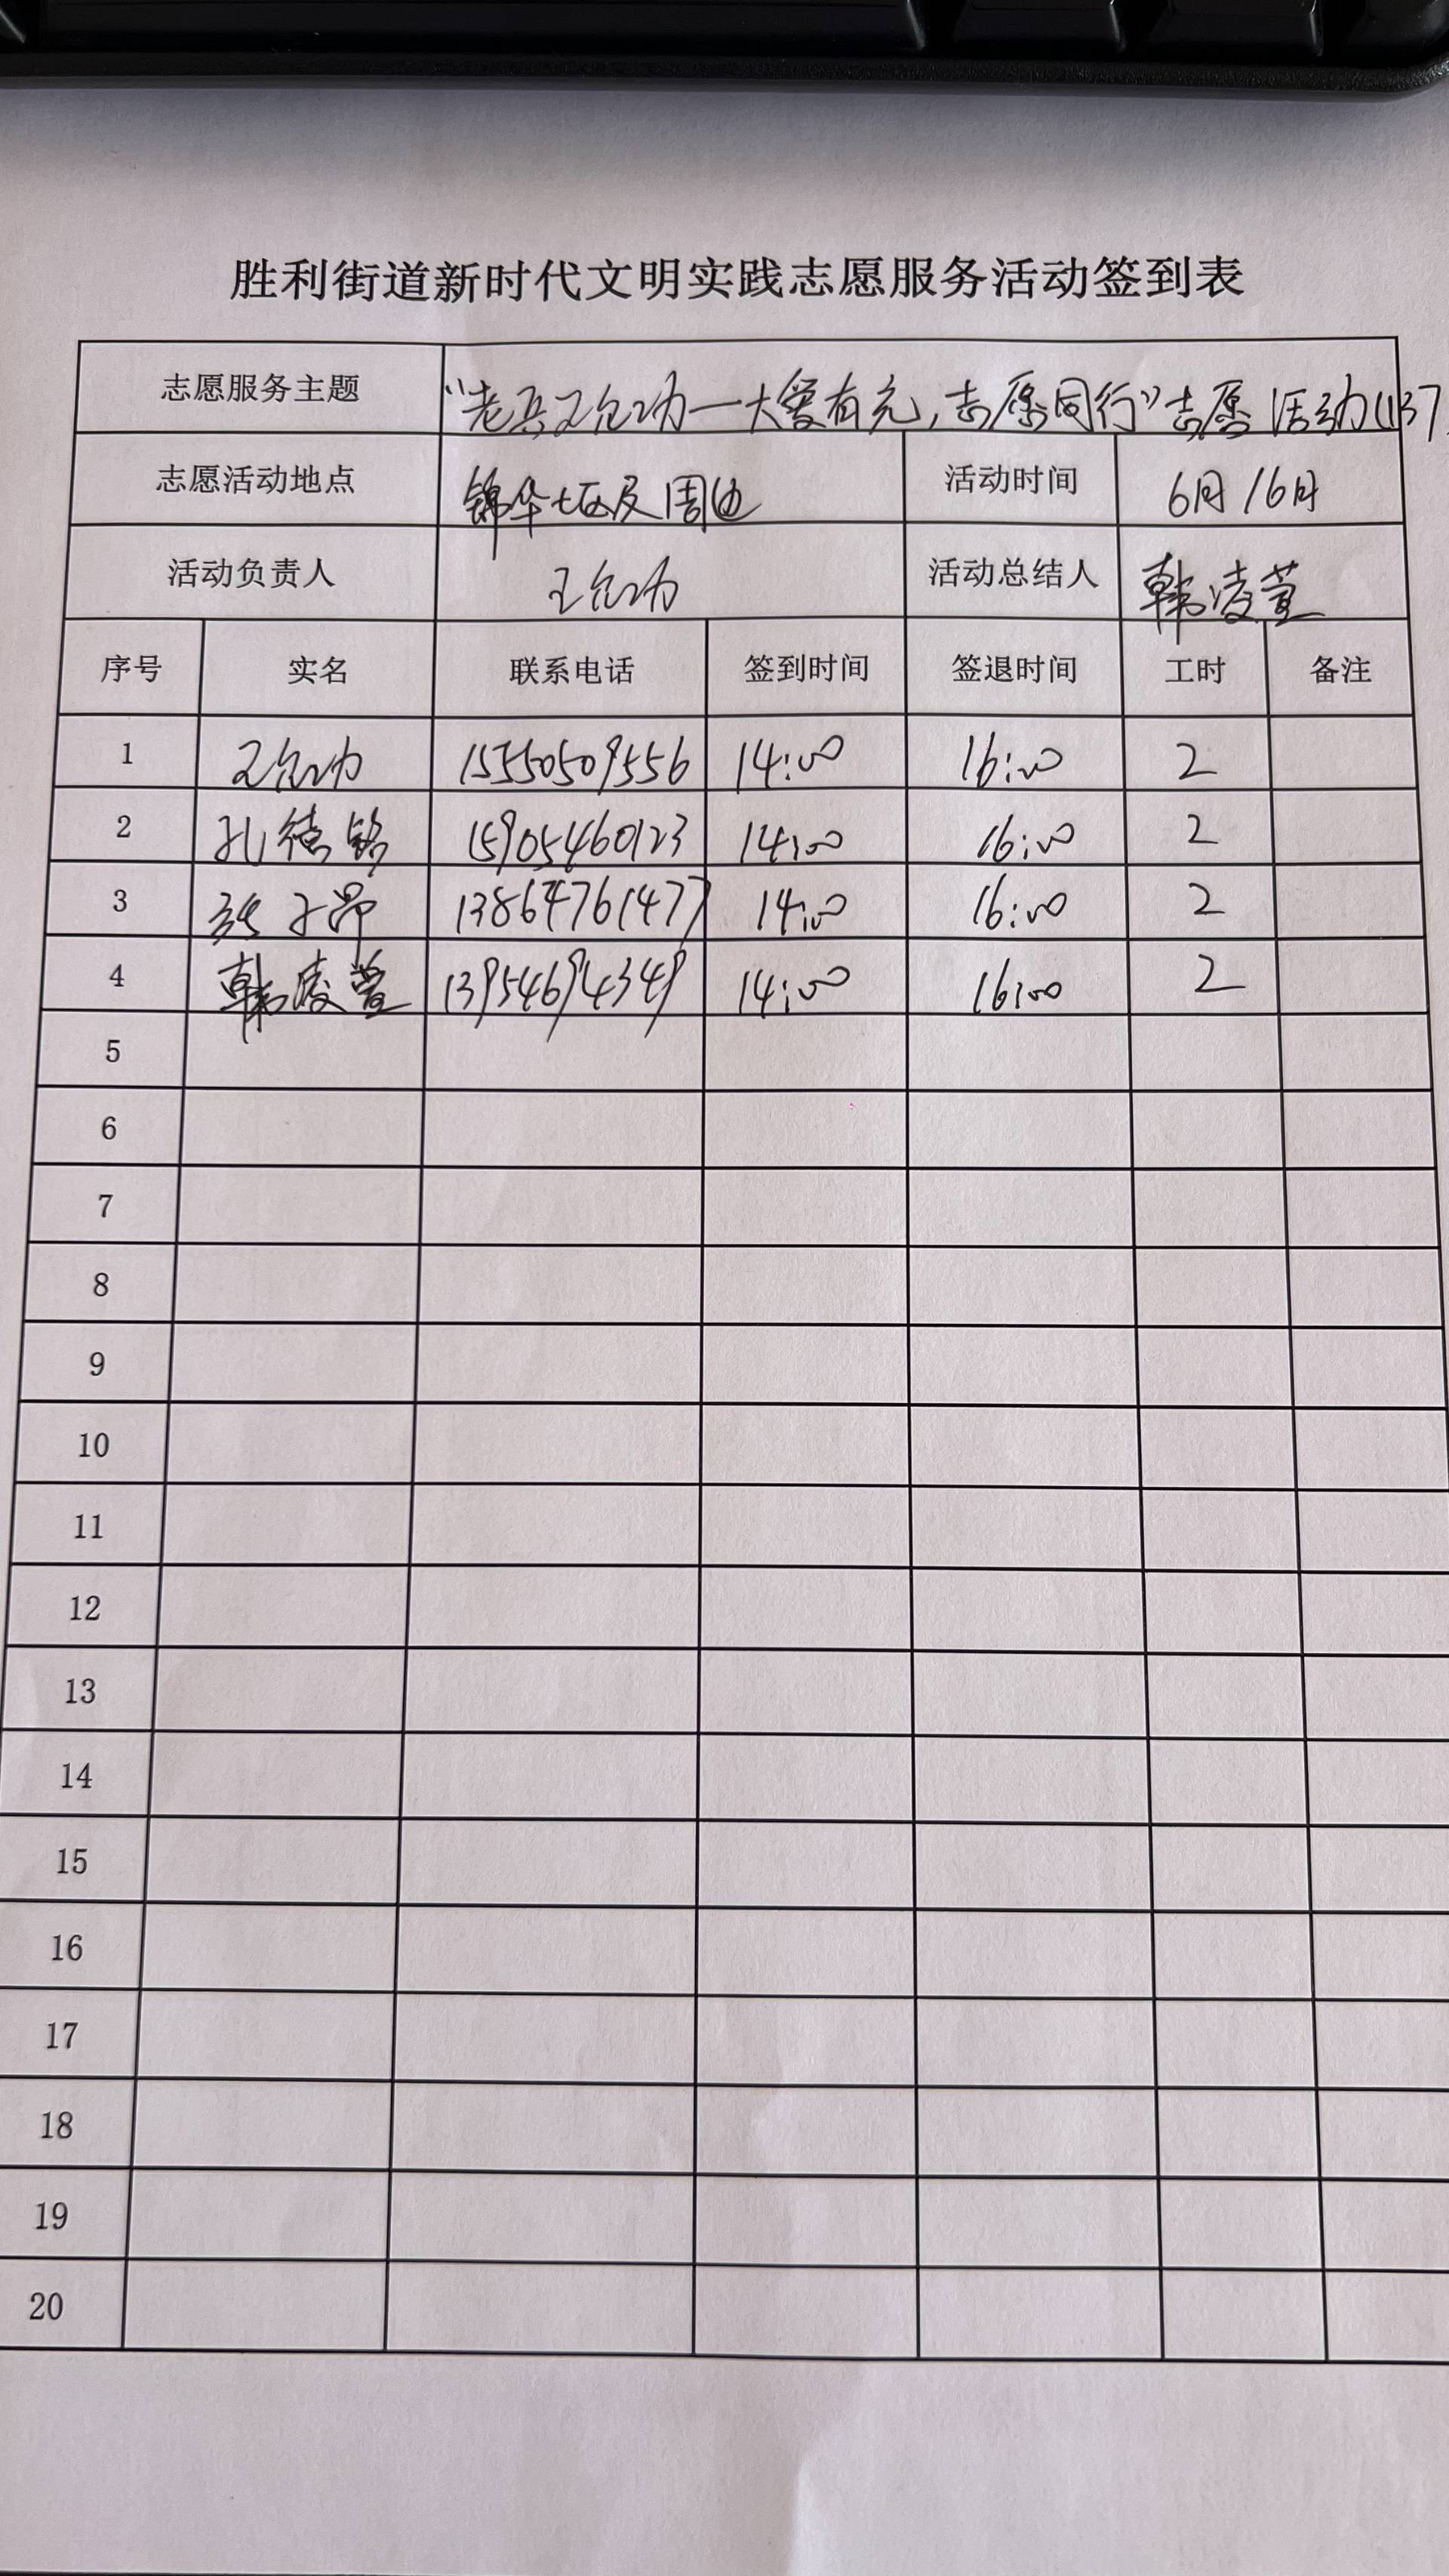 胜利街道新时代文明实践志愿服务活动签到表
志愿服务主题 “老兵王允功—大爱有光,志愿同行”志愿活动(137
志愿活动地点 锦华七区及周边 活动时间 6月16日
活动负责人 王允功 活动总结人 韩凌萱
序号 实名 联系电话 签到时间 签退时间 工时 备注
1 王允功 15550509556 14:00 16:00 2
2 孔德铭 15905460123 14:00 16:00 2
3 张子昂 13864761477 14:00 16:00 2
4 韩凌萱 13954694349 14:00 16:00 2
5
6
7
8
9
10
11
12
13
14
15
16
17
18
19
20